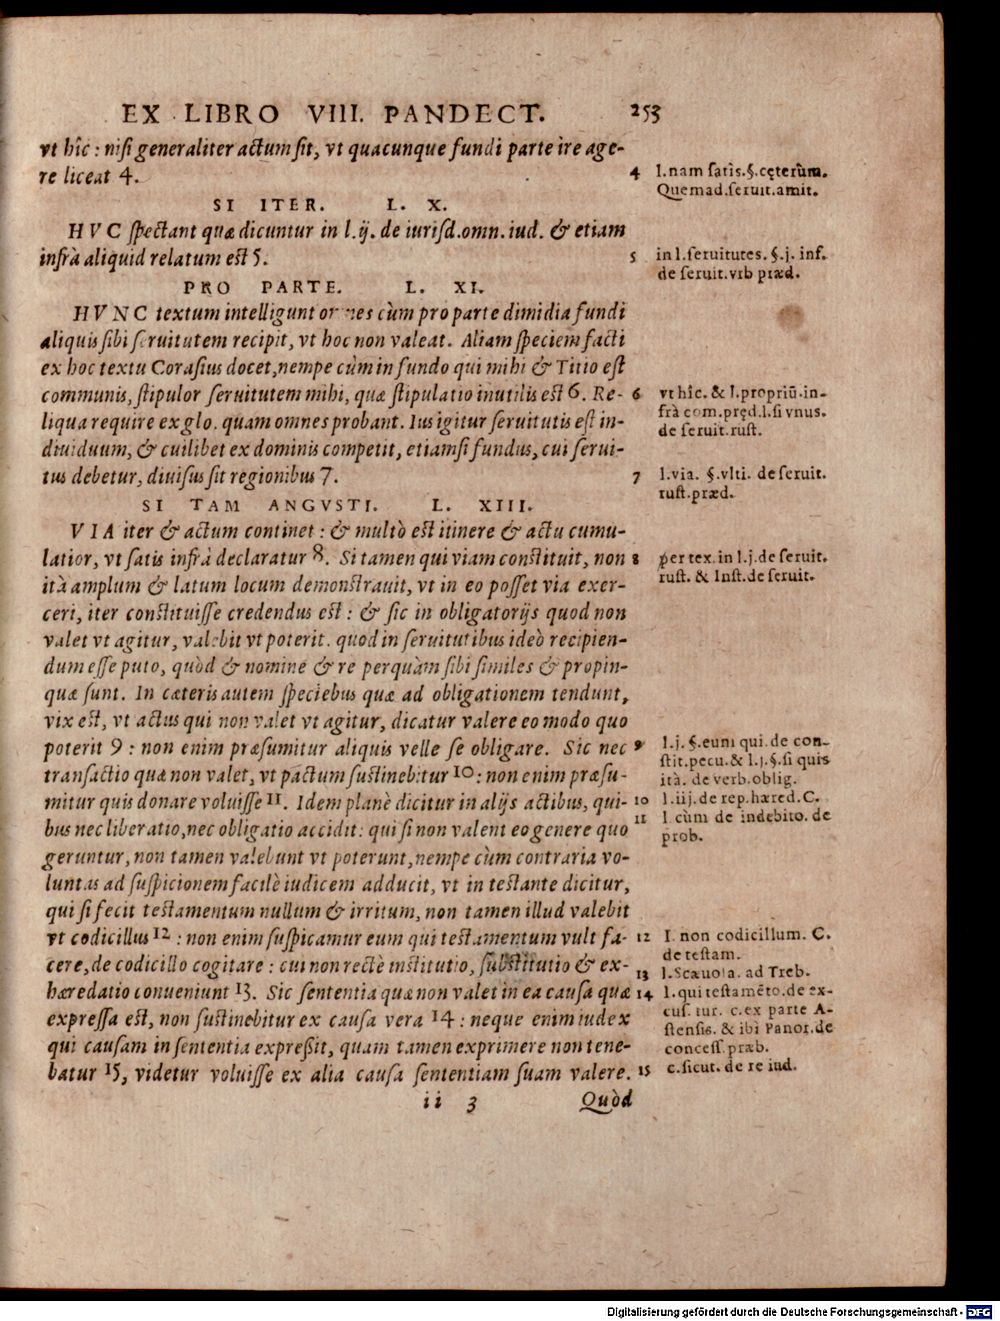 EX LIBRO VIII. PANDECT. 253
vt hîc : nisi generaliter actum sit, vt quacunque fundi parte ire age-
re liceat 4.
4 l. nam satìs. §. cęterùm.
Quemad. seruit. amit.
SI ITER. L. X.
HVC spectant quæ dicuntur in l. ij. de iurisd. omn. iud. & etiam
infrà aliquid relatum est 5.
5 in l. seruitutes. §. j. inf.
de seruit. vrb præd.
PRO PARTE. L. XI.
HVNC textum intelligunt omnes cùm pro parte dimidia fundi
aliquis sibi seruitutem recipit, vt hoc non valeat. Aliam speciem facti
ex hoc textu Corasius docet, nempe cùm in fundo qui mihi & Titio est
communis, stipulor seruitutem mihi, quæ stipulatio inutilis est 6. Re-
liqua require ex glo. quam omnes probant. Ius igitur seruitutis est in-
diuiduum, & cuilibet ex dominis competit, etiamsi fundus, cui serui-
tus debetur, diuisus sit regionibus 7.
6 vt hîc. & l. propriũ. in-
frà com. pręd. l. si vnus.
de seruit. rust.
7 l. via. §. vlti. de seruit.
rust. præd.
SI TAM ANGVSTI. L. XIII.
VIA iter & actum continet : & multò est itinere & actu cumu-
latior, vt satis infrà declaratur 8. Si tamen qui viam constituit, non
ità amplum & latum locum demonstrauit, vt in eo posset via exer-
ceri, iter constituisse credendus est : & sic in obligatorijs quod non
valet vt agitur, valebit vt poterit. quod in seruitutibus ideò recipien-
dum esse puto, quòd & nomine & re perquàm sibi similes & propin-
quæ sunt. In cæteris autem speciebus quæ ad obligationem tendunt,
vix est, vt actus qui non valet vt agitur, dicatur valere eo modo quo
poterit 9 : non enim præsumitur aliquis velle se obligare. Sic nec
transactio quæ non valet, vt pactum sustinebitur 10 : non enim præsu-
mitur quis donare voluisse 11. Idem planè dicitur in alijs actibus, qui-
bus nec liberatio, nec obligatio accidit : qui si non valent eo genere quo
geruntur, non tamen valebunt vt poterunt, nempe cùm contraria vo-
luntas ad suspicionem facilè iudicem adducit, vt in testante dicitur,
qui si fecit testamentum nullum & irritum, non tamen illud valebit
vt codicillus 12 : non enim suspicamur eum qui testamentum vult fa-
cere, de codicillo cogitare : cui non rectè institutio, substitutio & ex-
hæredatio conueniunt 13. Sic sententia quæ non valet in ea causa quæ
expressa est, non sustinebitur ex causa vera 14 : neque enim iudex
qui causam in sententia expreßit, quam tamen exprimere non tene-
batur 15, videtur voluisse ex alia causa sententiam suam valere.
8 per tex. in l. j. de seruit.
rust. & Inst. de seruit.
9 l. j. §. eum qui. de con-
stit. pecu. & l. j. §. si quis
ità. de verb. oblig.
10 l. iij. de rep. hæred. C.
11 l cùm de indebito. de
prob.
12 l. non codicillum. C.
de testam.
13 l. Scæuola. ad Treb.
14 l. qui testamẽto. de ex-
cus. tut. c. ex parte A-
stensis. & ibi Panor. de
concess. præb.
15 c. sicut. de re iud.
ii 3 Quòd
Digitalisierung gefördert durch die Deutsche Forschungsgemeinschaft - DFG